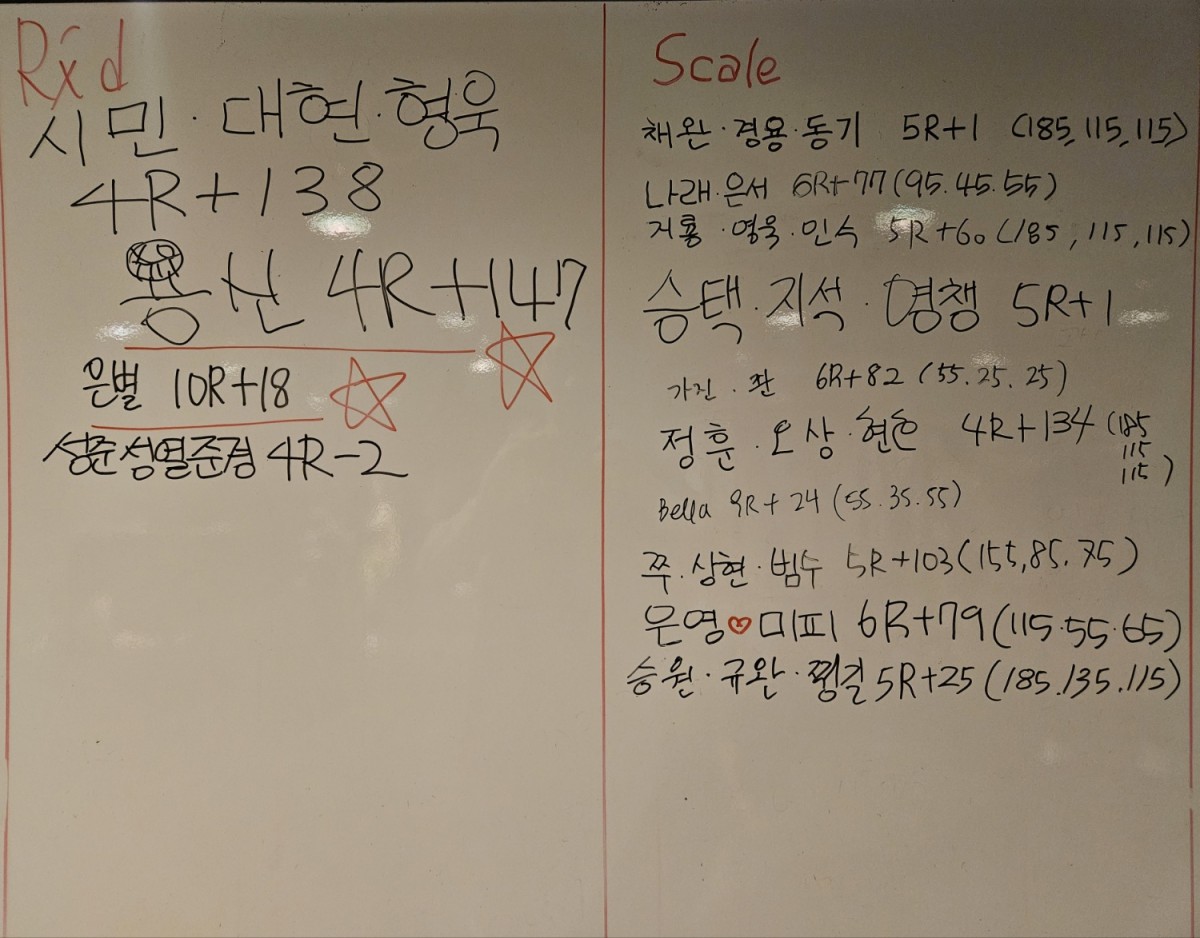 Rx'd
시민·대현·형욱
4R+138
용신 4R+147
은별 10R+18
성준성열준경 4R-2
Scale
채완·경용·동기 5R+1 (185,115,115)
나래·은서 6R+77(95.45.55)
거룡·영욱·인수 5R+60(185,115,115)
승택·지석·영챙 5R+1
가진·콴 6R+82 (55.25.25)
정훈·오상·현호 4R+134(185
115
115)
Bella 9R+24 (55.35.55)
쭈·상현·범수 5R+103(155,85.75)
은영♡미피 6R+79(115·55·65)
승원·규완·찡걸 5R+25 (185.135.115)